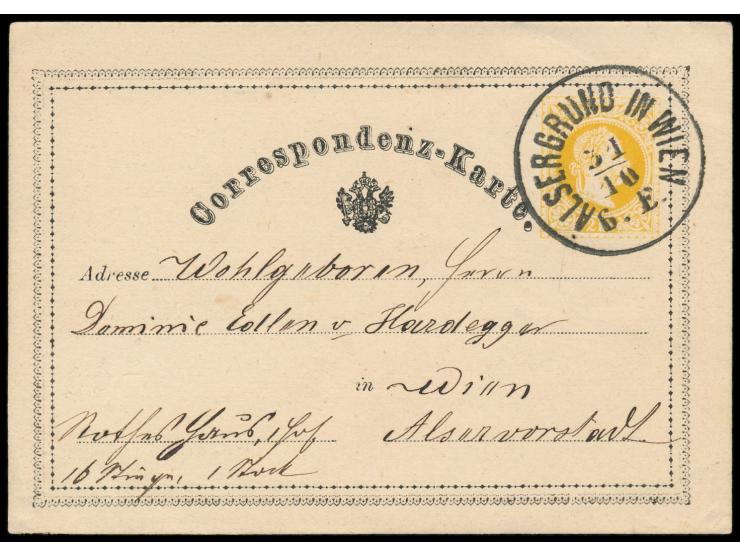 Correspondenz-Karte.
ALSERGRUND IN WIEN
31
10
9. E.
Adresse Wohlgeboren, Herrn
Dominic Edlen v Hardegger
in Wien
Rothes Haus, 1 Hof, Alservorstadt
16 Stiege, 1 Stock